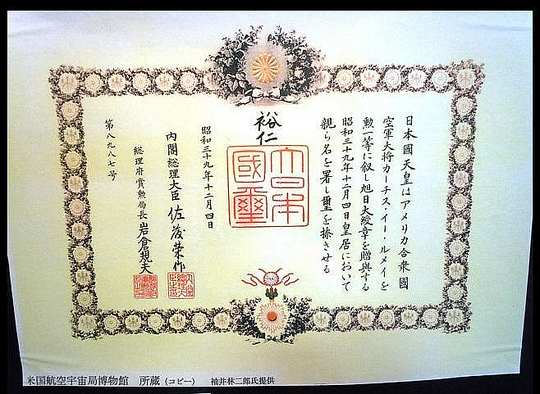 日本國天皇はアメリカ合衆國
空軍大将カーチス・イー・ルメイを
勲一等に叙し旭日大綬章を贈與する
昭和三十九年十二月四日皇居において
親ら名を署し璽を捺させる
裕仁
大日本
國璽
昭和三十九年十二月四日
内閣総理大臣 佐藤栄作
総理府賞勲局長 岩倉規夫
第八九八七号
米国航空宇宙局博物館 所蔵 (コピー) 袖井林二郎氏提供